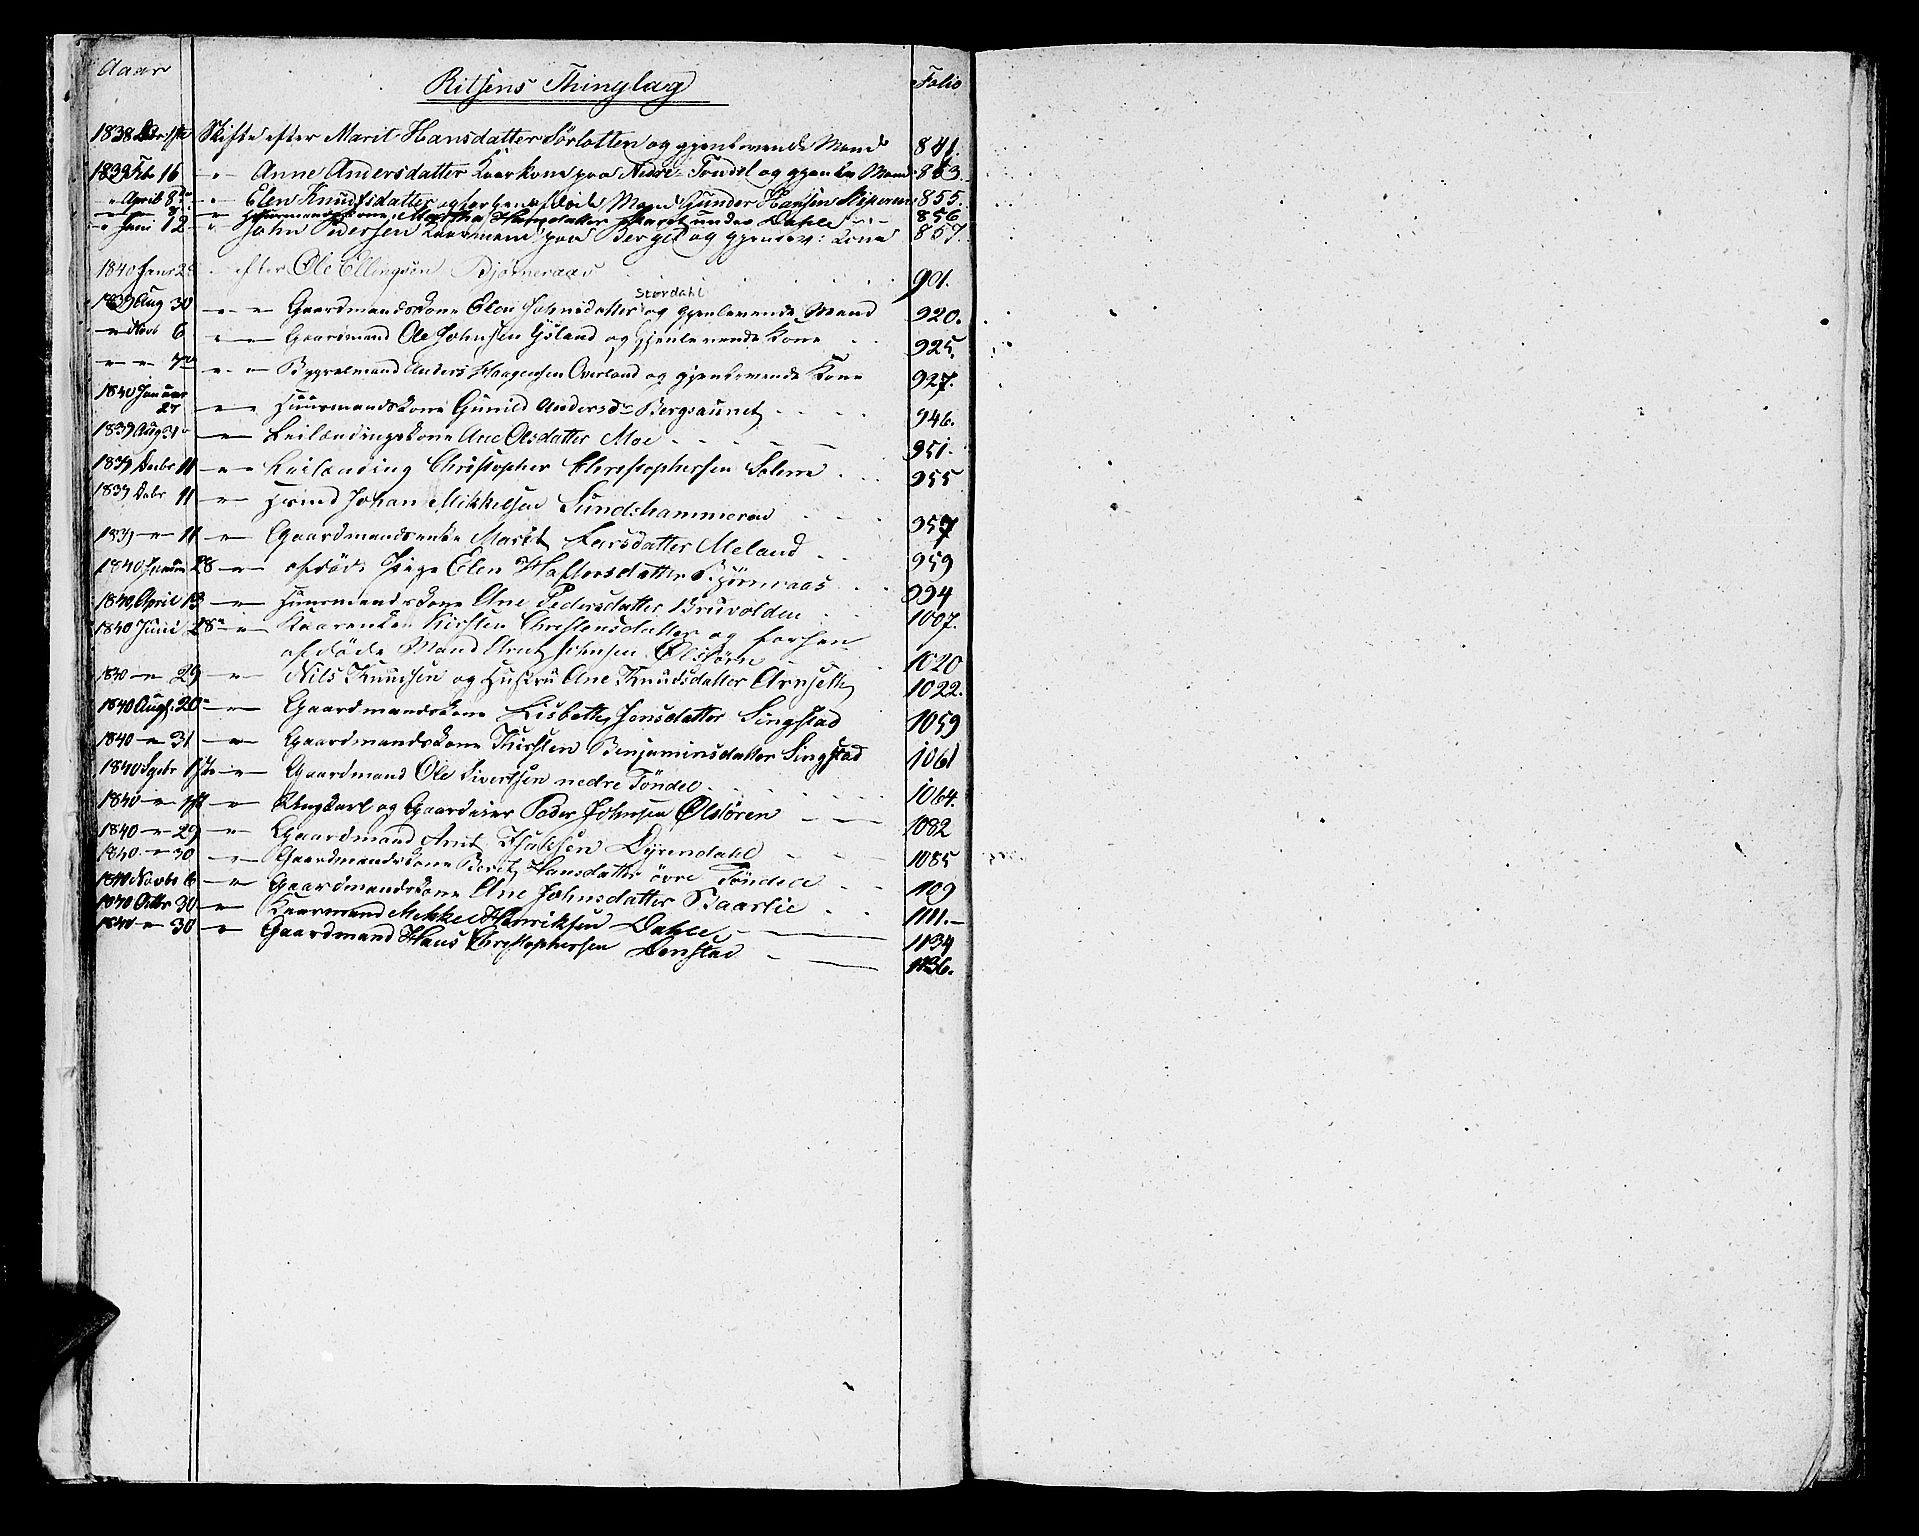 Aaar
Ritsens Thinglag
Folio
1838 Skifte efter Marit Hansdatter Sørlotten og gjenlevende Mand 841.
1839 Feb 16 " Anne Andersdatter Kaarkone paa Nedre Tøndel og gjenle Mand 843.
" April 8de " Elen Knudsdatter og Mand Gunder Hansen 855.
" " " Huusmandskone Martha Hansdatter under Dahle 856
" Juni 12 " John Pedersen Kaarmand paa Berget og gjenlev: Kone 857.
1840 Janr 28 " efter Ole Ellingsen Bjørneraas 901.
Stordahl
1839 Aug 30 " " Gaardmandskone Elen Johnsdatter og gjenlevende Mand 920.
" Novb 6 " " Gaardmand Ole Johnsen Ysland og gjenlevende Kone 925.
" " 7de " " Bygselmand Anders Haagensen Overland og gjenlevende Kone 927.
1840 Januar 27 " " Huusmandskone Gunild Andersdr Bergsaunet 946.
1839 Aug 31 " Leilændingskone Ane Olsdatter Moe 951.
1839 Decbr 11 " " Leilænding Christopher Christophersen Solem 955
1839 Debr 11 " Johan Mikkelsen Sundshammeren 957
1839 " 11 " Gaardmandsenke Marit Larsdatter Meland 959
1840 Januar 28 " afdøde Pige Elen Haftorsdatter Bjørneraas 994
1840 April 13 " Huusmandskone Ane Pedersdatter Bruvolden 1007.
1840 Juni 28 " Kaarenken Kirsten Christensdatter og forhen
afdøde Mand Arnt Johnsen Ølstøren 1020
1840 " 29 " Nils Knudsen og Hustru Ane Knudsdatter Arnseth 1022.
1840 Augs. 20 " Gaardmandskone Lisbeth Jensdatter Singstad 1059
1840 " 31 " Gaardmandskone Kirsten Benjaminsdatter Singstad 1061
1840 1ste " Gaardmand Ole Sivertsen nedre Tøndel 1064.
1840 " 1ste " Ungkarl og Gaardeier Peder Johnsen Ølstøren 1082
1840 " 29 " Gaardmand Arnt Isaksen Dyrendahl 1085
1840 " 30 " Gaardmandskone Berit Hansdatter övre Tøndel 1109
1840 Novbr 6 " Gaardmandskone Ane Johnsdatter Baarlie 1111.
1840 Octbr 30 " Kaarmand Mikkel Henriksen Dahle 1134
1840 " 30 " Gaardmand Hans Christophersen Denstad 1136.